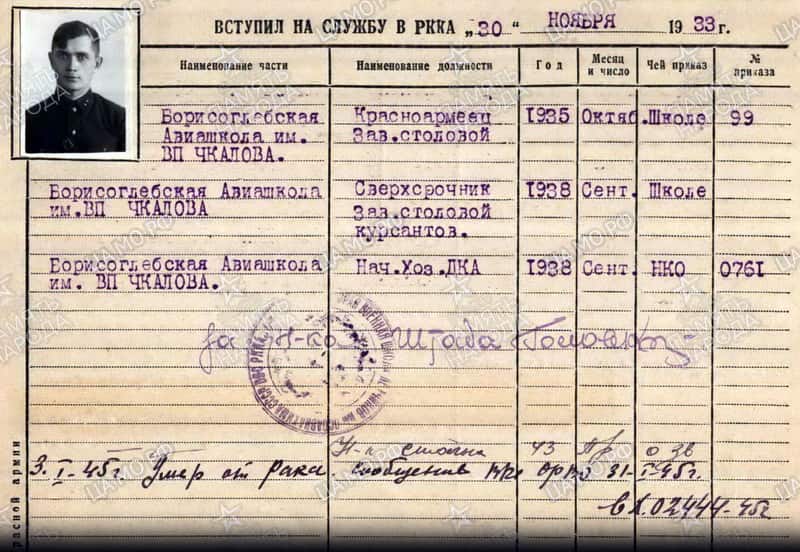 ВСТУПИЛ НА СЛУЖБУ В РККА „30“ НОЯБРЯ 1933 г.
Наименование части Наименование должности Год Месяц и число Чей приказ № приказа
Борисоглебская Красноармеец 1935 Октяб. Школе 99
Авиашкола им. Зав.столовой
ВП ЧКАЛОВА.
Борисоглебская Авиашкола Сверхсрочник 1938 Сент. Школе
им.ВП ЧКАЛОВА Зав.столовой
курсантов.
Борисоглебская Авиашкола Нач.Хоз.ДКА 1938 Сент. НКО 0761
им. ВП ЧКАЛОВА.
за Н-ка Штаба
43
3.I-45г. Умер от рака. сообщение 31-I-45г.
вх.02444-45г
расной армии
ПАМЯТЬ НАРОДА
ЦАМО.РФ